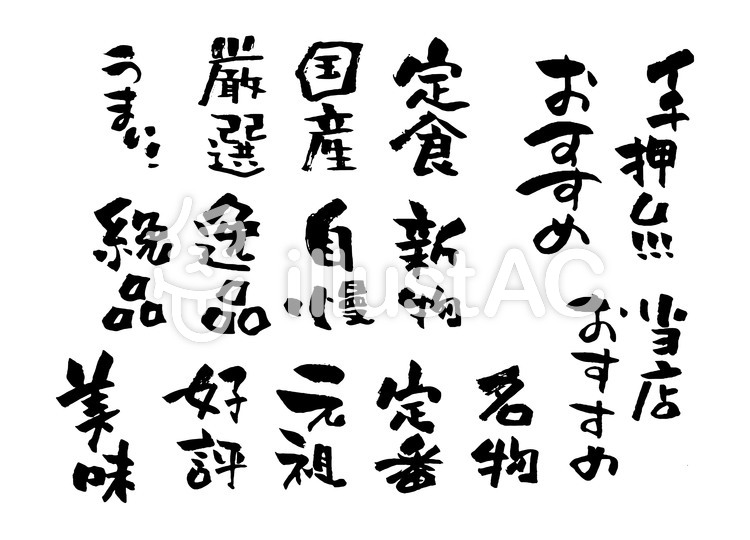 イチ押し!!!
おすすめ
定食
国産
厳選
うまい!
新物
自慢
逸品
絶品
当店
おすすめ
名物
定番
元祖
好評
美味
illustAC